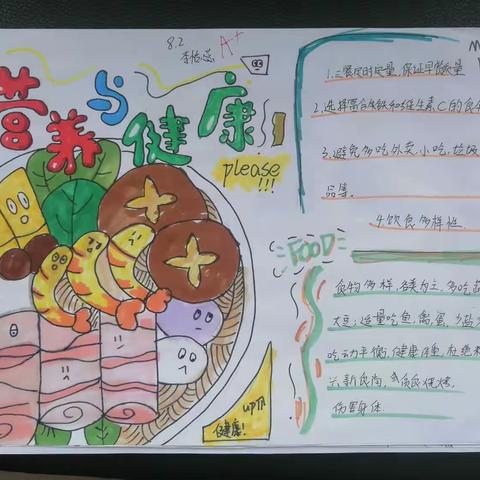 8.2
A+
营养与健康
please
!!!
1.三餐定时定量,保证早餐质量
2.选择富含铁和维生素C的食
3.避免多吃外卖,小吃,垃圾
品等。
4.饮食多样性
FOOD
食物多样,谷类为主,多吃蔬
大豆;适量吃鱼,禽,蛋,少盐
吃动平衡,健康体重,杜绝
兴新食尚,
伤害身体
up
健康!